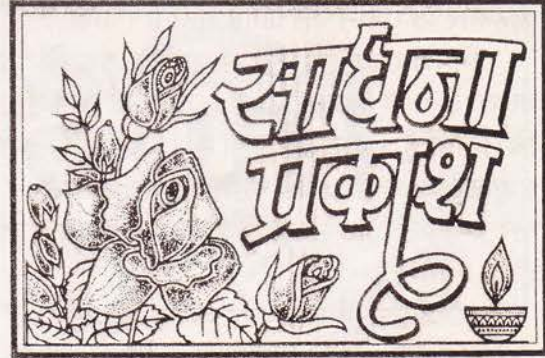 साधना
प्रकाश